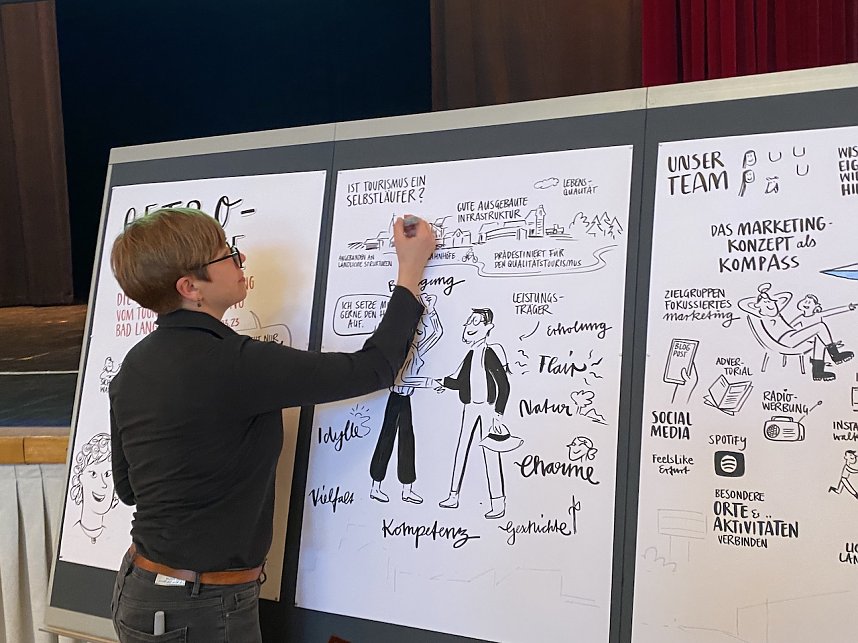 VOM TOU
BAD LAN
23
IST TOURISMUS EIN
SELBSTLÄUFER?
LEBENS-
QUALITÄT
GUTE AUSGEBAUTE
INFRASTRUKTUR
ANGEBUNDEN AN
LÄNDLICHE STRUKTUREN
AHNHÖFE
PRÄDESTINIERT FÜR
DEN QUALITÄTSTOURISMUS
ICH SETZE M
GERNE DEN H
AUF.
LEISTUNGS-
TRÄGER
Erholung
Flair
Natur
Charme
Idylle
Vielfalt
Kompetenz
Geschichte
UNSER
TEAM
WIS
EIG
WIE
HI
DAS MARKETING-
KONZEPT als
KOMPASS
ZIELGRUPPEN
FOKUSSIERTES
marketing
BLOG
POST
ADVER-
TORIAL
RADIO-
WERBUNG
SOCIAL
MEDIA
FeelsLike
Erfurt
SPOTIFY
INSTA
walk
BESONDERE
ORTE &
AKTIVITÄTEN
VERBINDEN
LAN